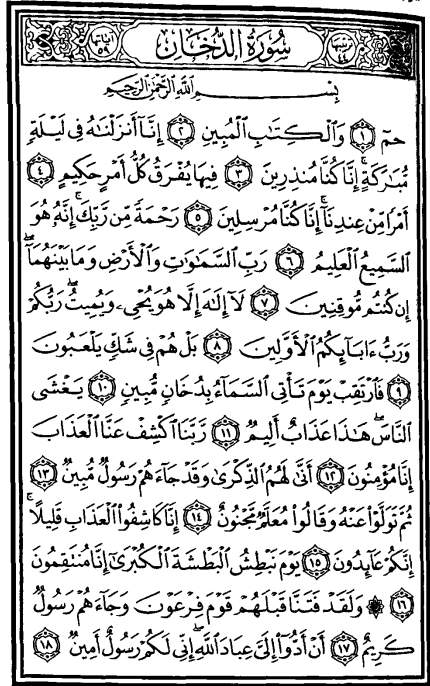 ترتيبها ٤٤ سُورَةُ الدُّخَانِ آياتها ٥٩
بِسْمِ اللَّهِ الرَّحْمَٰنِ الرَّحِيمِ
حمٓ ١ وَالْكِتَٰبِ الْمُبِينِ ٢ إِنَّآ أَنزَلْنَٰهُ فِى لَيْلَةٍ
مُّبَٰرَكَةٍ ۚ إِنَّا كُنَّا مُنذِرِينَ ٣ فِيهَا يُفْرَقُ كُلُّ أَمْرٍ حَكِيمٍ ٤
أَمْرًا مِّنْ عِندِنَآ ۚ إِنَّا كُنَّا مُرْسِلِينَ ٥ رَحْمَةً مِّن رَّبِّكَ ۚ إِنَّهُۥ هُوَ
السَّمِيعُ الْعَلِيمُ ٦ رَبِّ السَّمَٰوَٰتِ وَالْأَرْضِ وَمَا بَيْنَهُمَآ ۖ
إِن كُنتُم مُّوقِنِينَ ٧ لَآ إِلَٰهَ إِلَّا هُوَ يُحْىِۦ وَيُمِيتُ ۖ رَبُّكُمْ
وَرَبُّ ءَابَآئِكُمُ الْأَوَّلِينَ ٨ بَلْ هُمْ فِى شَكٍّ يَلْعَبُونَ
٩ فَارْتَقِبْ يَوْمَ تَأْتِى السَّمَآءُ بِدُخَانٍ مُّبِينٍ ١٠ يَغْشَى
النَّاسَ ۖ هَٰذَا عَذَابٌ أَلِيمٌ ١١ رَّبَّنَا اكْشِفْ عَنَّا الْعَذَابَ
إِنَّا مُؤْمِنُونَ ١٢ أَنَّىٰ لَهُمُ الذِّكْرَىٰ وَقَدْ جَآءَهُمْ رَسُولٌ مُّبِينٌ ١٣
ثُمَّ تَوَلَّوْا۟ عَنْهُ وَقَالُوا۟ مُعَلَّمٌ مَّجْنُونٌ ١٤ إِنَّا كَاشِفُوا۟ الْعَذَابِ قَلِيلًا ۚ
إِنَّكُمْ عَآئِدُونَ ١٥ يَوْمَ نَبْطِشُ الْبَطْشَةَ الْكُبْرَىٰٓ إِنَّا مُنتَقِمُونَ
١٦ ۞ وَلَقَدْ فَتَنَّا قَبْلَهُمْ قَوْمَ فِرْعَوْنَ وَجَآءَهُمْ رَسُولٌ
كَرِيمٌ ١٧ أَنْ أَدُّوٓا۟ إِلَىَّ عِبَادَ اللَّهِ ۖ إِنِّى لَكُمْ رَسُولٌ أَمِينٌ ١٨